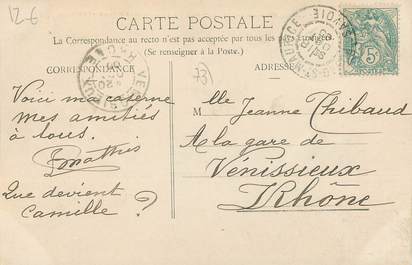 12-6
CARTE POSTALE
La Correspondance au recto n'est pas acceptée par tous les pays étrangers.
(Se renseigner à la Poste.)
CORRESPONDANCE
ADRESSE
73)
5
Voici ma caserne
mes amitiés
à tous.
Mathis
Que devient
Camille ?
M lle Jeanne Thibaud
A la gare de
Vénissieux
Rhône